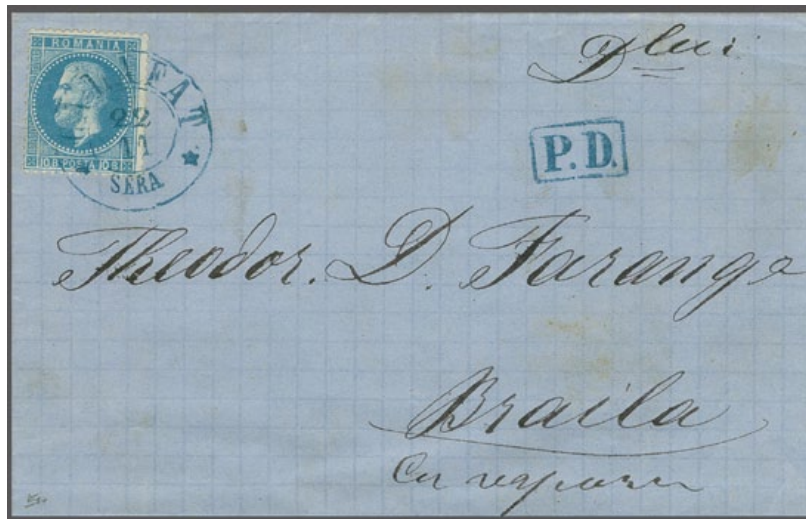 ROMANIA
10 B. POSTA 10 B.
22
11
SERA
Dlui
P.D.
Theodor. D. Farango
Braila
Cu vapasu